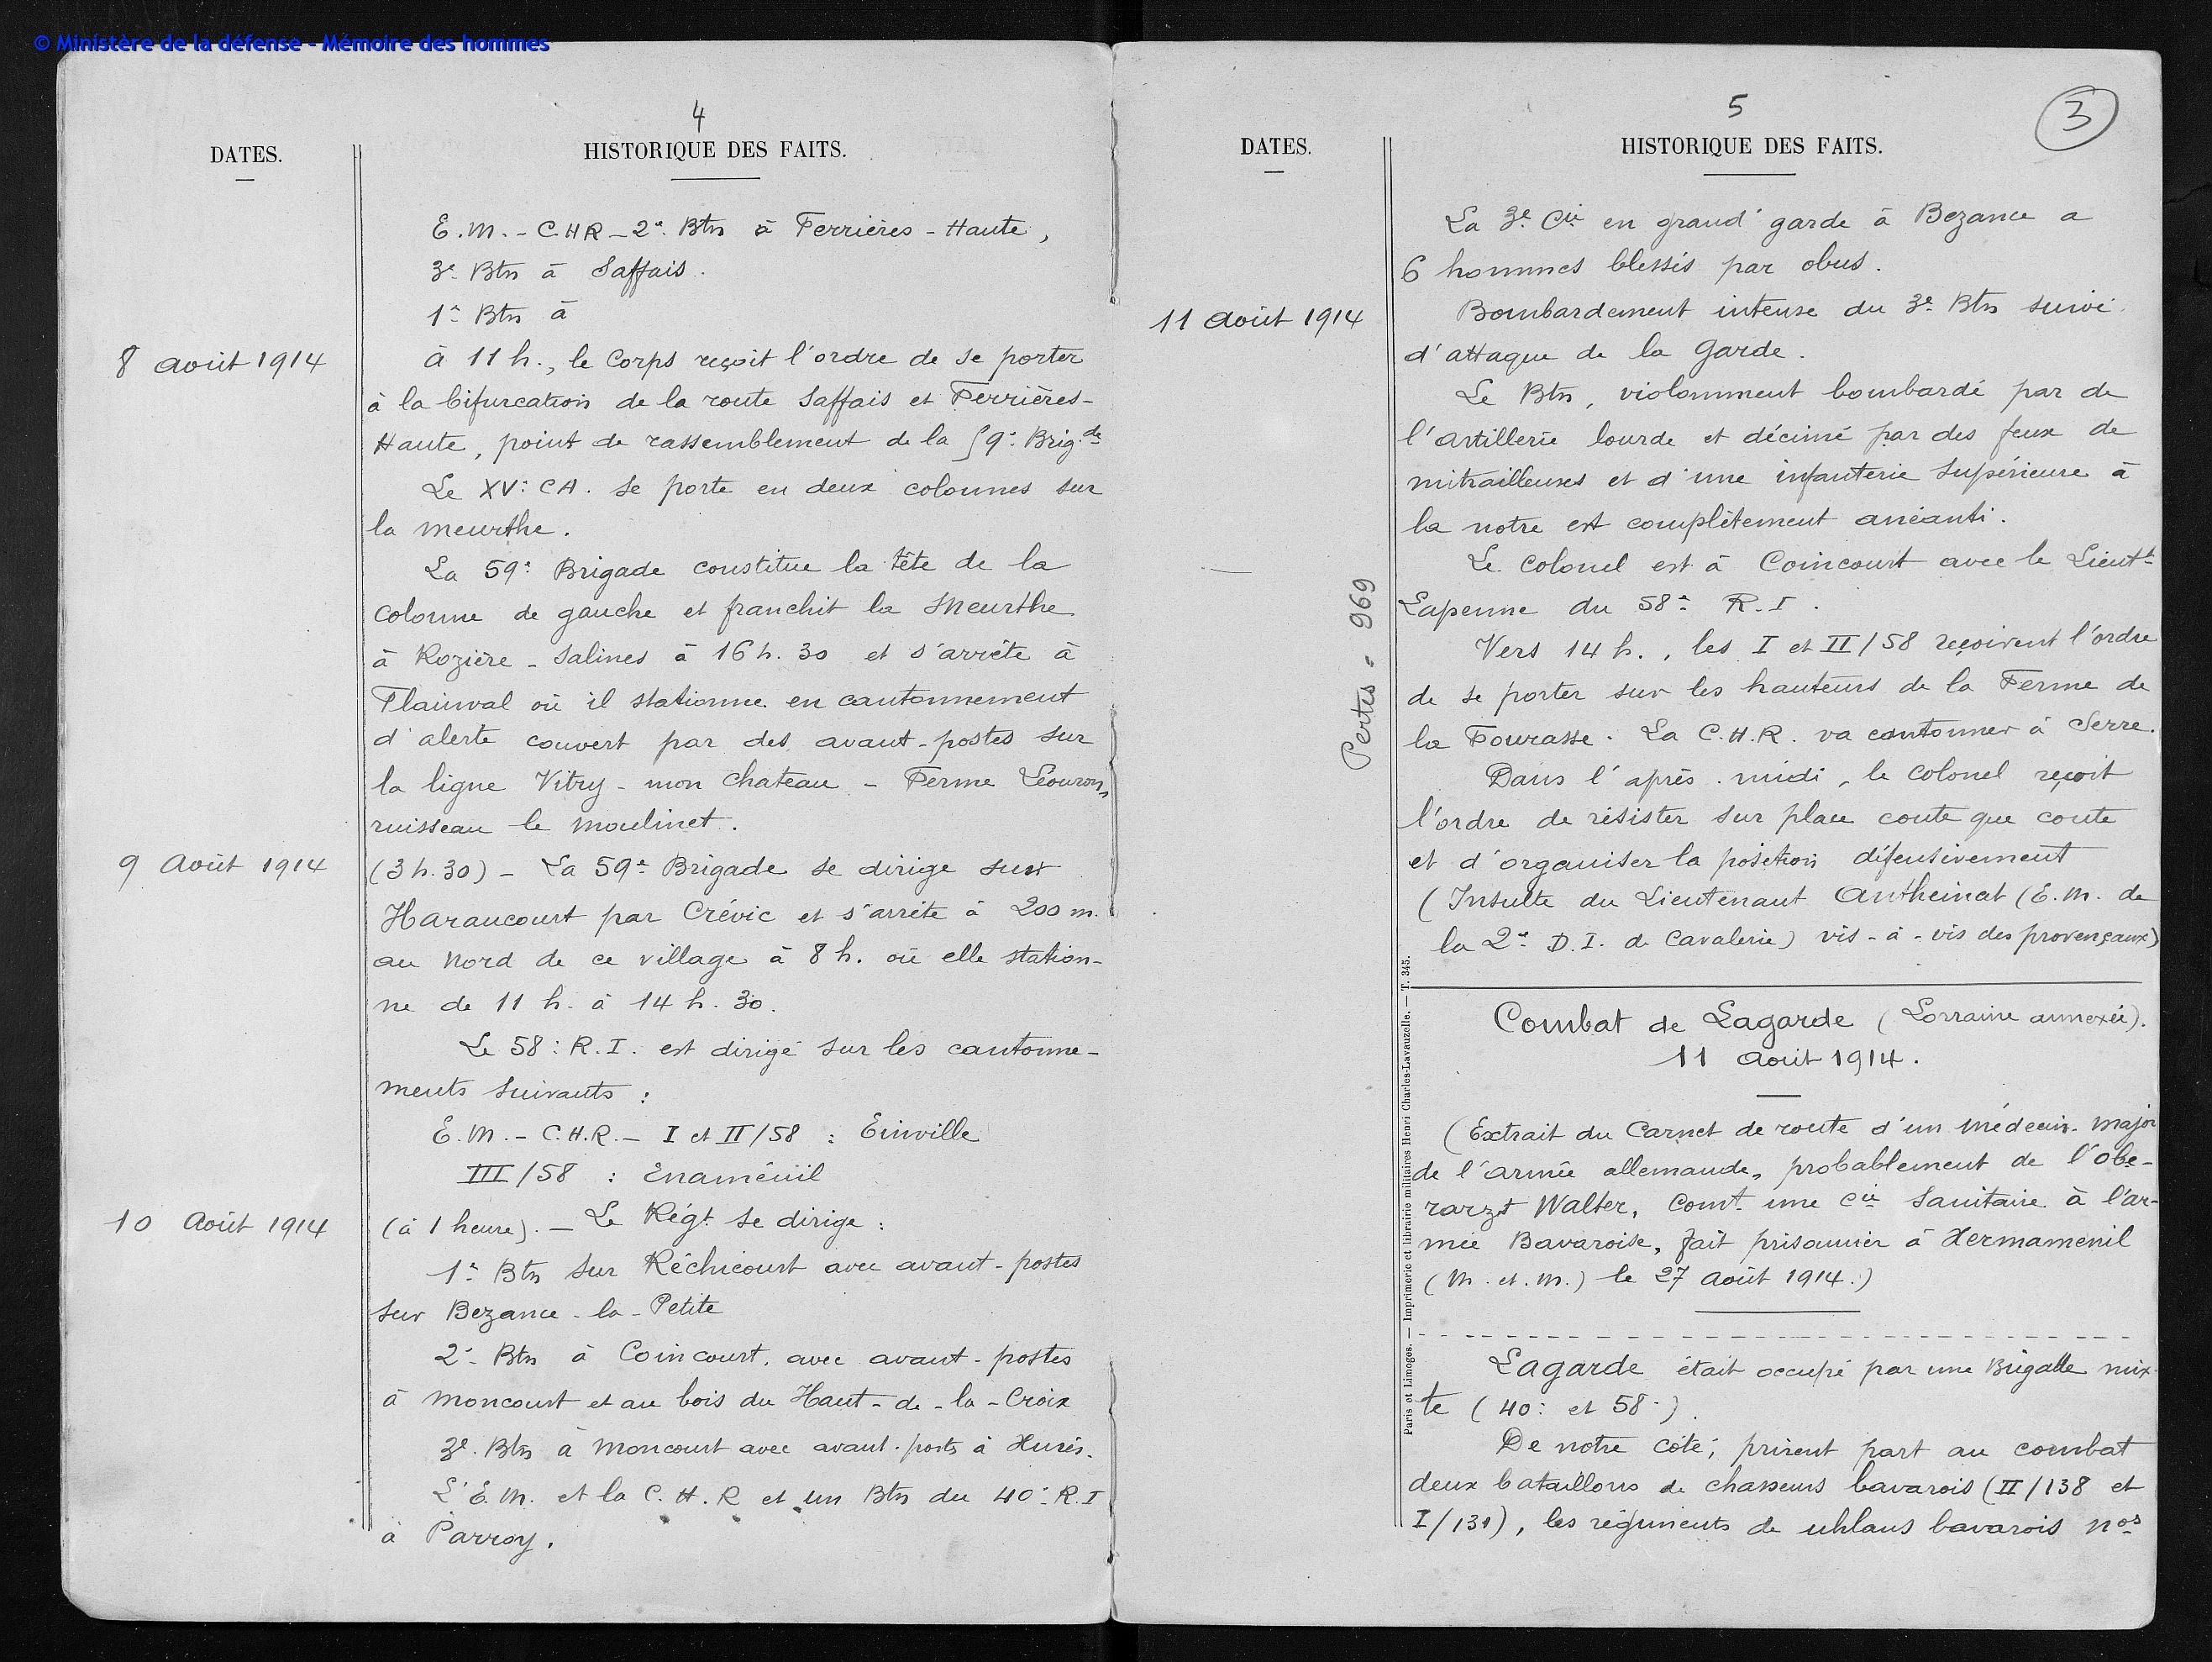 © Ministère de la défense - Mémoire des hommes
4
DATES.
HISTORIQUE DES FAITS.
E.M. - C.H.R - 2e Btn à Ferrières - Haute,
3e Btn à Saffais.
1er Btn à
8 août 1914
à 11 h., le Corps reçoit l'ordre de se porter
à la bifurcation de la route Saffais et Ferrières-
Haute, point de rassemblement de la 59e Brig.de
Le XVe CA. se porte en deux colonnes sur
la meurthe.
La 59e Brigade constitue la tête de la
colonne de gauche et franchit la Meurthe
à Rozière - Salines à 16 h. 30 et s'arrête à
Flainval où il stationne en cantonnement
d'alerte couvert par des avant-postes sur
la ligne Vitry - mon chateau - Ferme Léouron,
ruisseau le moulinet.
9 Août 1914
(3 h. 30) - La 59e Brigade se dirige sur
Haraucourt par Crévic et s'arrête à 200 m.
au Nord de ce village à 8 h. où elle station-
ne de 11 h. à 14 h. 30.
Le 58e R.I. est dirigé sur les cantonne-
ments suivants :
E.M. - C.H.R. - I et II/58 : Einville
III/58 : Enaménil
10 Août 1914
(à 1 heure). - Le Régt. se dirige :
1er Btn sur Réchicourt avec avant-postes
sur Bezance - la - Petite
2e Btn à Coincourt, avec avant-postes
à moncourt et au bois du Haut-de-la-Croix
3e Btn à Moncourt avec avant-posts à Xurés.
L'E.M. et la C.H.R et un Btn du 40e R.I
à Parroy.
5
3
DATES.
HISTORIQUE DES FAITS.
La 3e Cie en grand'garde à Bezance a
6 hommes blessés par obus.
11 août 1914
Bombardement intense du 3e Btn suivi
d'attaque de la Garde.
Le Btn, violomment bombardé par de
l'artillerie lourde et décimé par des feux de
mitrailleuses et d'une infanterie supérieure à
la notre est complètement anéanti.
Le Colonel est à Coincourt avec le Lieutt
Lapenne du 58e R.I.
Pertes = 969
Vers 14 h., les I et II/58 reçoivent l'ordre
de se porter sur les hauteurs de la Ferme de
la Fourasse. La C.H.R. va cantonner à Serre.
Dans l'après-midi, le Colonel reçoit
l'ordre de résister sur place coute que coute
et d'organiser la position défensivement
(Insulte du Lieutenant Antheinat (E.M. de
la 2e D.I. de Cavalerie) vis-à-vis des provençaux)
Combat de Lagarde (Lorraine annexée).
11 août 1914.
(Extrait du Carnet de route d'un médecin-major
de l'armée allemande, probablement de l'obe-
rarzt Walter, Comt. une Cie Sanitaire à l'ar-
mée Bavaroise, fait prisonnier à Xermamenil
(M. et. M.) le 27 août 1914.)
Lagarde était occupé par une Brigade mix-
te (40e et 58e).
De notre côté, prirent part au combat
deux bataillons de chasseurs bavarois (II/138 et
I/131), les régiments de uhlans bavarois nos
Paris et Limoges. — Imprimerie et librairie militaires Henri Charles-Lavauzelle. — T. 345.